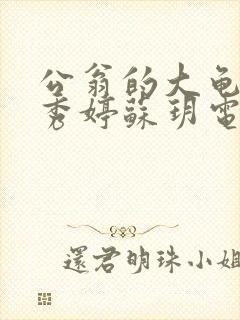 公翁的大龟
秀婷蘇玥電
還君明珠小姐